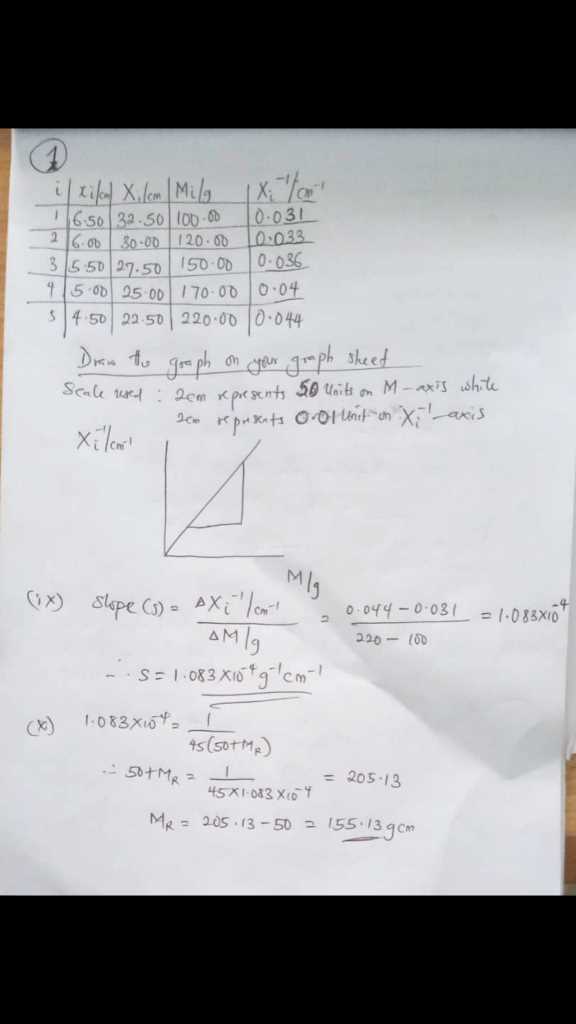 1
i | xi/cm | Xi/cm | Mi/g | Xi⁻¹/cm⁻¹
1 | 6.50 | 32.50 | 100.00 | 0.031
2 | 6.00 | 30.00 | 120.00 | 0.033
3 | 5.50 | 27.50 | 150.00 | 0.036
4 | 5.00 | 25.00 | 170.00 | 0.04
5 | 4.50 | 22.50 | 220.00 | 0.044
Draw the graph on your graph sheet
Scale used : 2cm represents 50 units on M-axis while
2cm represents 0.01 unit on Xi⁻¹-axis
Xi⁻¹/cm⁻¹
M/g
(ix) Slope (s) = ΔXi⁻¹/cm⁻¹ / ΔM/g = 0.044 - 0.031 / 220 - 100 = 1.083X10⁻⁴
∴ S = 1.083X10⁻⁴g⁻¹cm⁻¹
(x) 1.083X10⁻⁴ = 1 / 45(50+MR)
∴ 50+MR = 1 / 45X1.083X10⁻⁴ = 205.13
MR = 205.13 - 50 = 155.13gcm